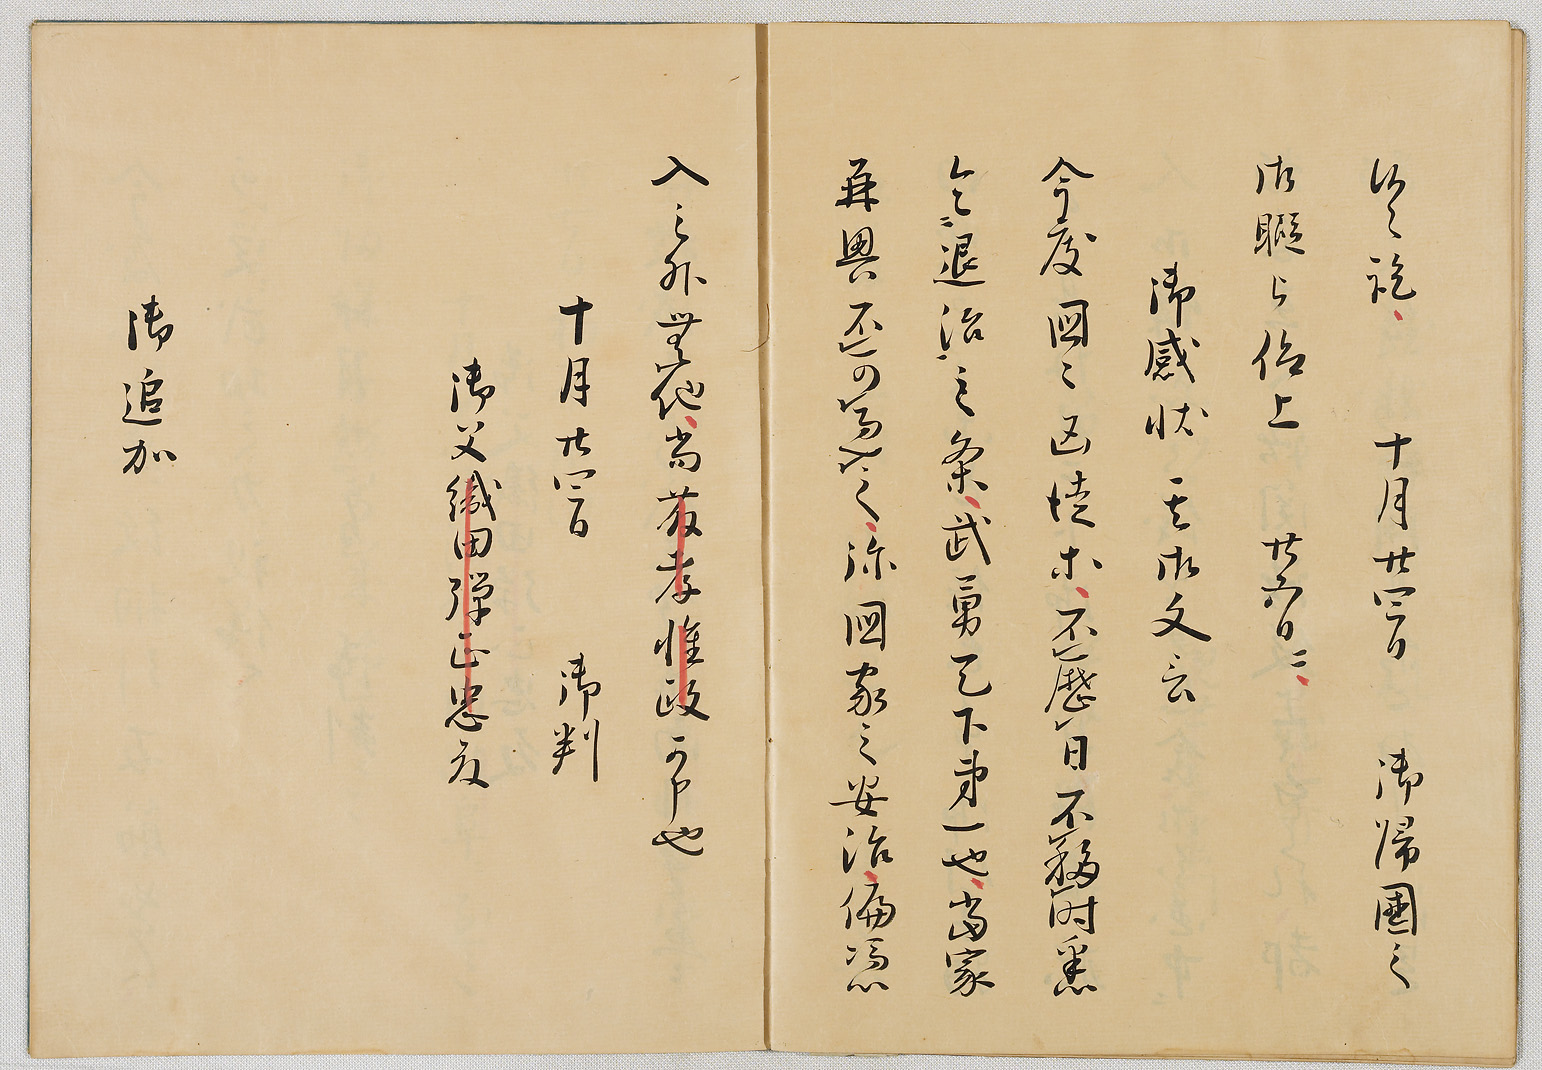 訖、 十月廿四日 御帰國之
御暇被仰上 廿五日ニ、
御感状 其御文言
今度國々凶徒等、不歴日不移時悉
令退治之条、武勇天下第一也、當家
再興不可過之、弥國家之安治、偏憑
入之外無他、尚藤孝惟政可申也
十月廿四日 御判
御父織田弾正忠殿
御追加